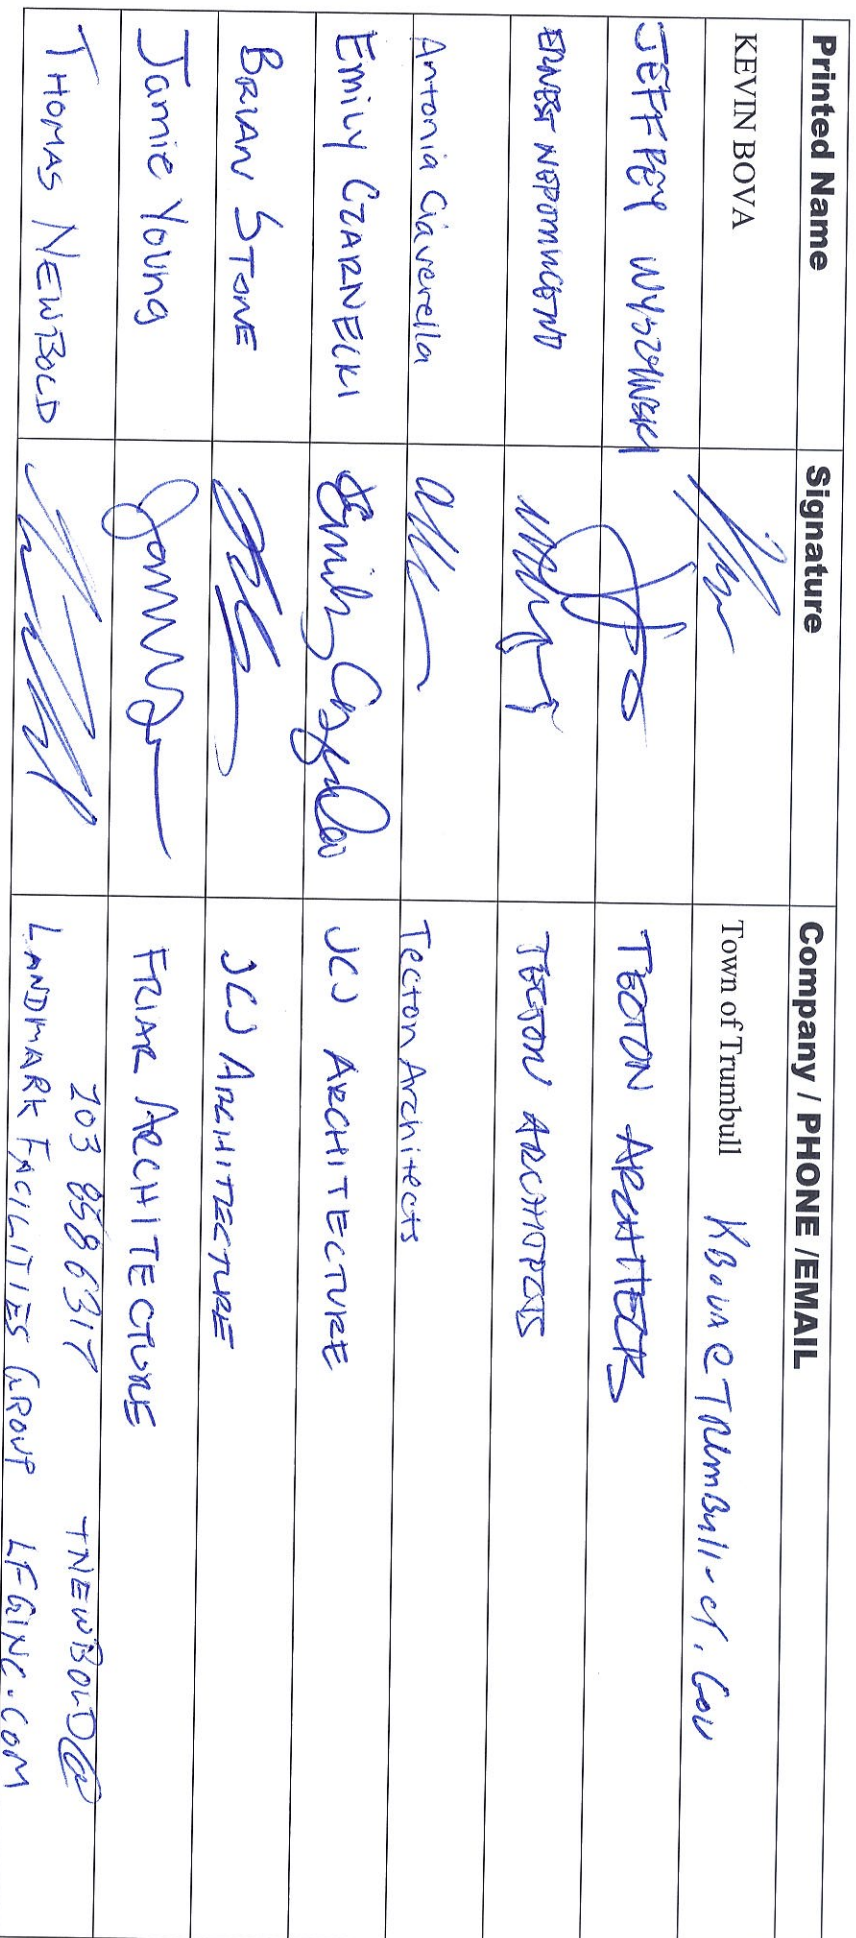 Printed Name Signature Company / PHONE /EMAIL
KEVIN BOVA Town of Trumbull KBova@Trumbull-ct.Gov
JEFFREY WYSZYNSKI TECTON ARCHITECTS
ERNEST NEPOMUCENO TECTON ARCHITECTS
Antonia Ciaverella Tecton Architects
Emily CZARNECKI Emily JCJ ARCHITECTURE
BRIAN STONE JCJ ARCHITECTURE
Jamie Young FRIAR ARCHITECTURE
THOMAS NEWBOLD 203 858 6317 TNEWBOLD@
LANDMARK FACILITIES GROUP LFGINC.COM